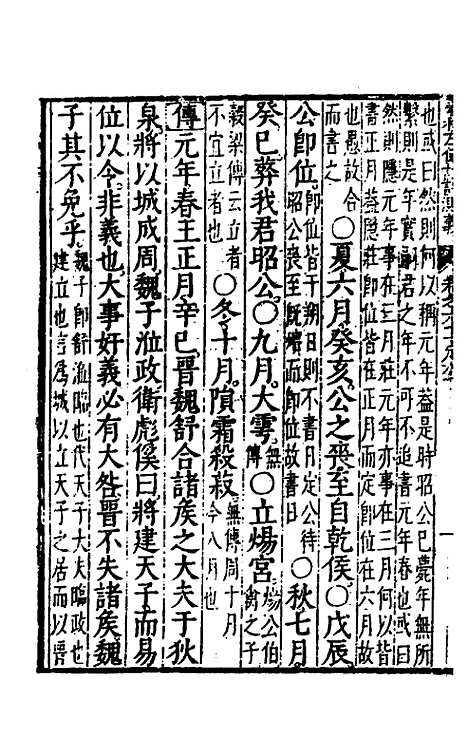 也或曰然則何以稱元年蓋是時昭公已薨年無所
繫則是年實嗣君之年不可不追書元年春也或曰
然則隱元年事在三月莊元年亦事在三月何以皆
書正月蓋隱莊即位皆在正月而定即位在六月故
也愚故合
而書之
○夏六月癸亥公之喪至自乾侯○戊辰
公即位
即位皆于朔日則不書日定公待
昭公喪至既殯而即位故書日
○秋七月
癸巳葬我君昭公○九月大雩
無
傳
○立煬宮
煬公伯
禽之子
穀梁傳云立者
不宜立者也
○冬十月隕霜殺菽
無傳周十月
今八月也
傳元年春王正月辛巳晉魏舒合諸侯之大夫于狄
泉將以城成周魏子涖政衛彪傒曰將建天子而易
位以令非義也大事奸義必有大咎晉不失諸侯魏
子其不免乎
魏子即舒涖臨也代天子大夫臨政也
建立也言為城以立天子之居而以晉